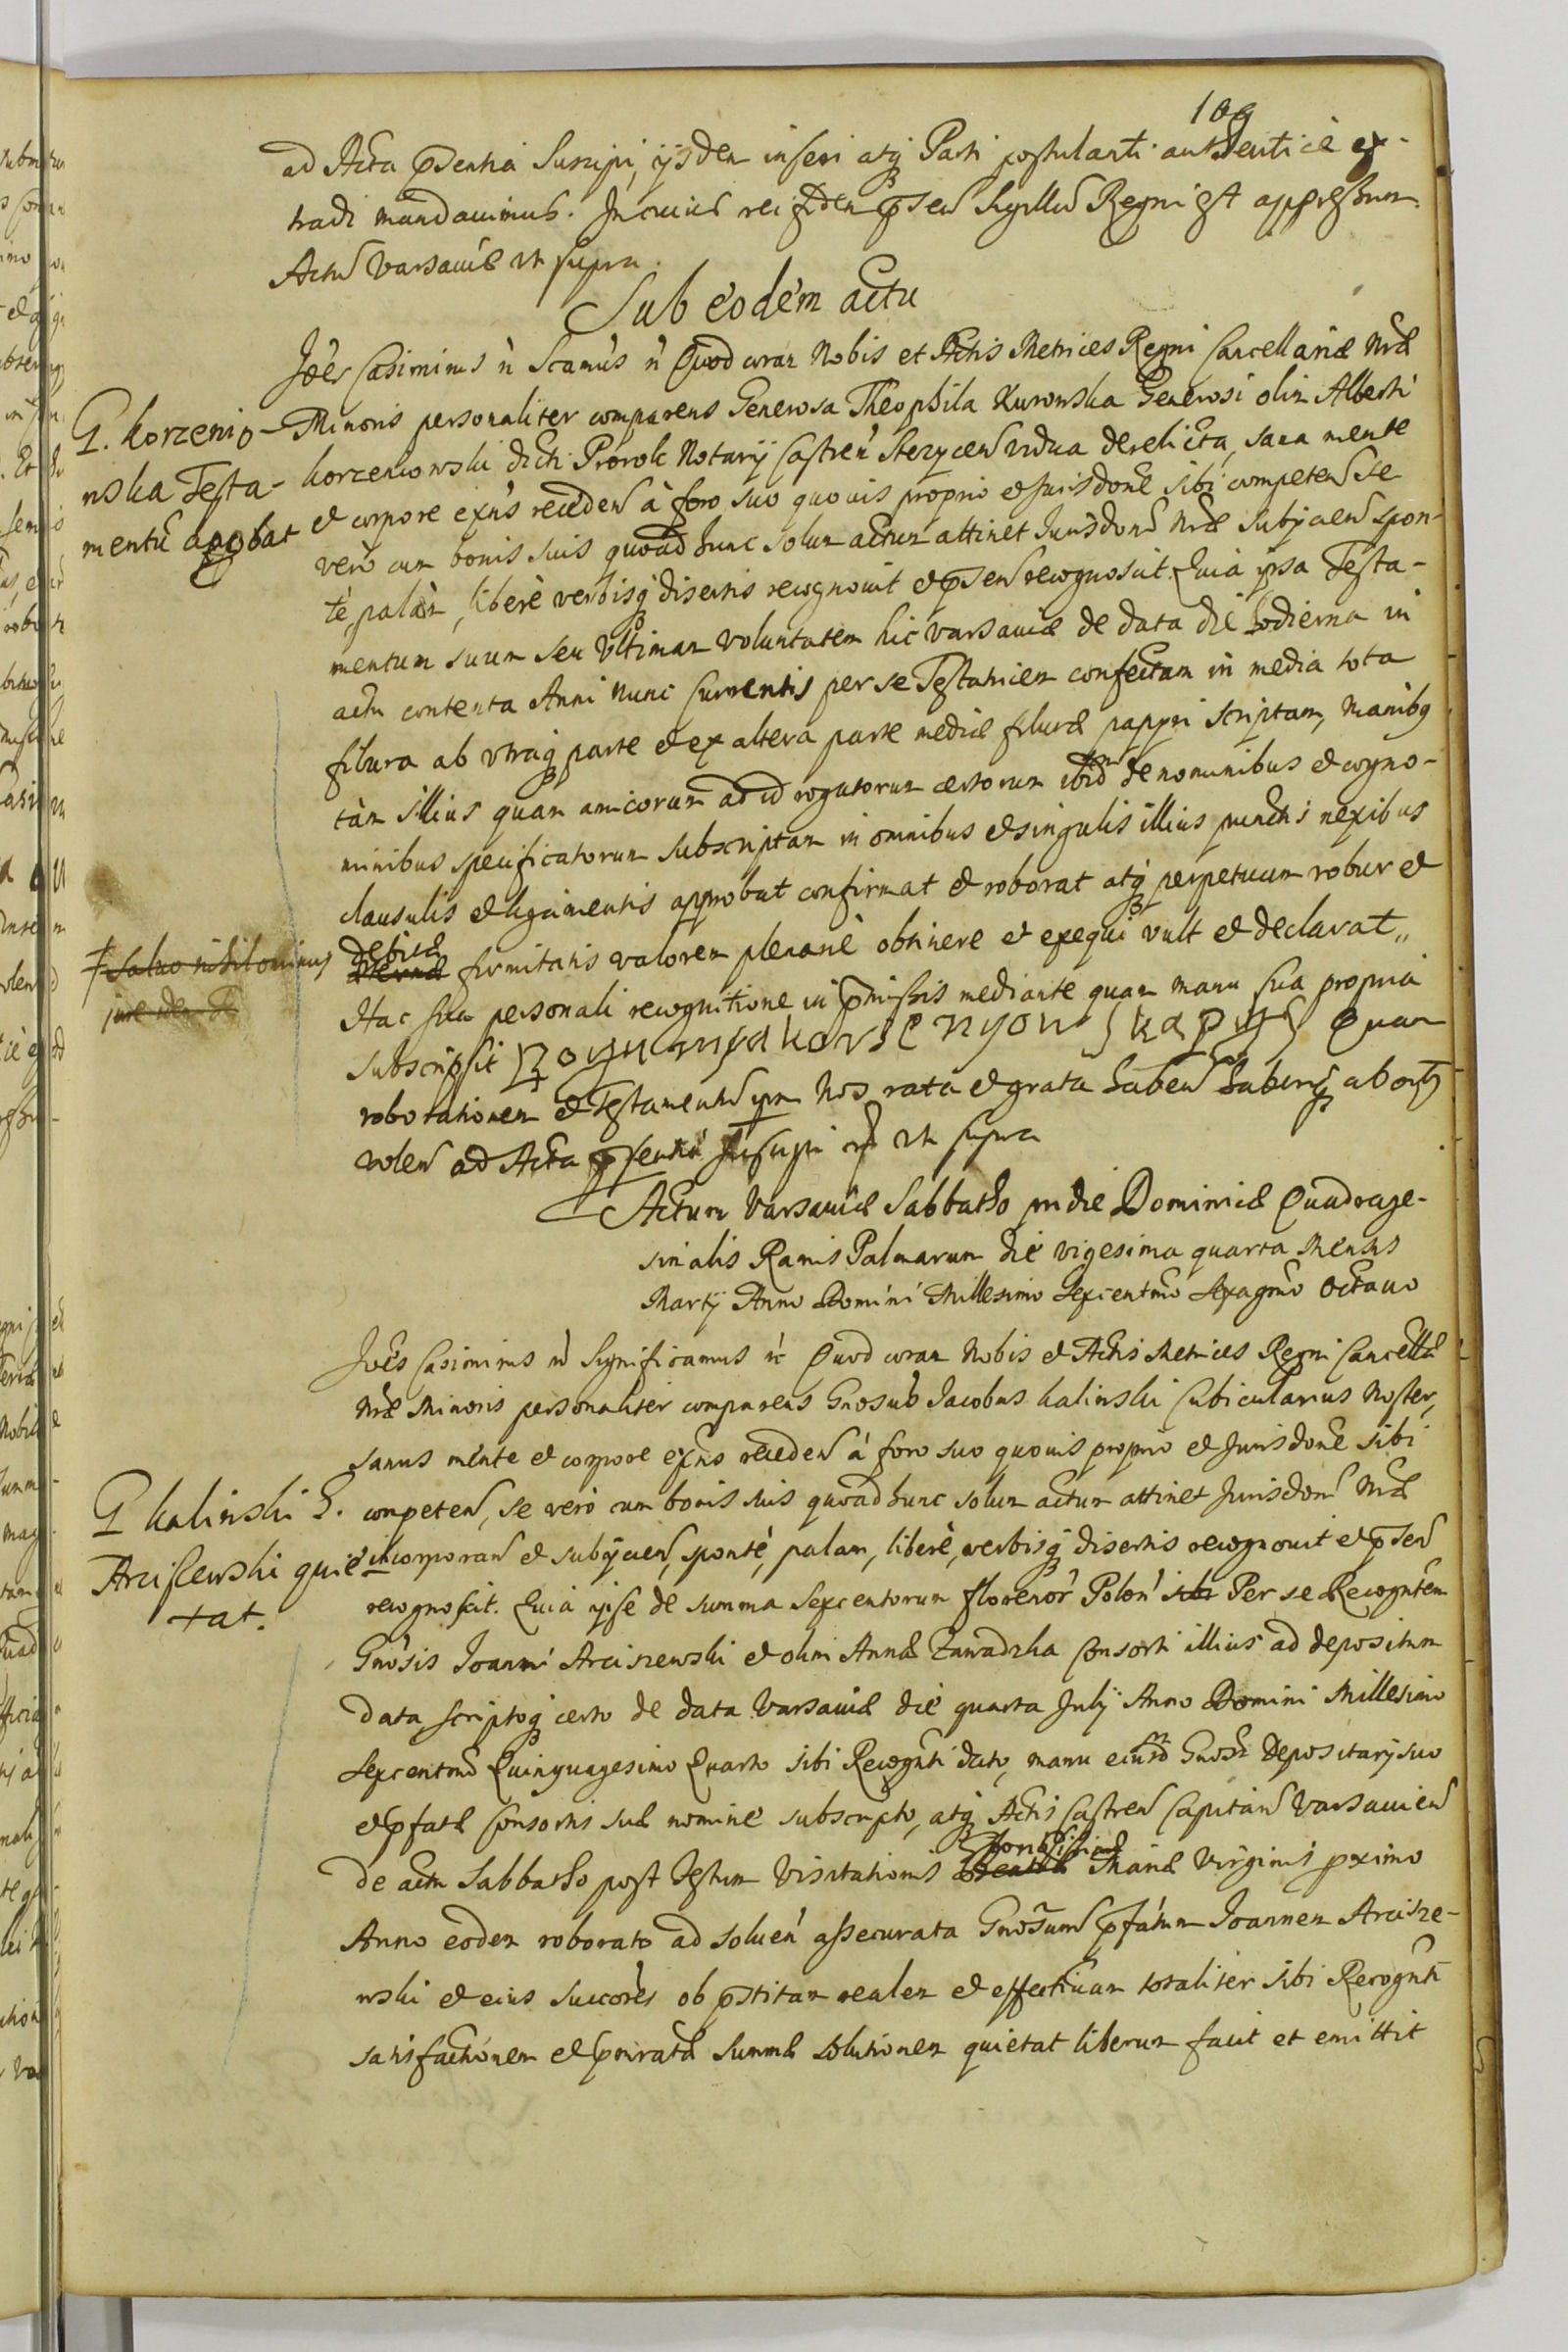 109
ad Acta p̃sentia suscipi, ijsdem inseri atq̨ Parti postulanti authentice ex-
tradi mandauimus. In cuius rei fidem p̃sen̄ Sigillu Regni est appressum.
Actu Varsauiæ ut supra.
Sub eodem actu
Joẽs Casimirus ſcamus Quod coram Nobis et Actis Metrices Regni Cancellariæ Nræ
G. Korzenio-
wska Testa-
mentũ apobat
Minoris personaliter comparens Generosa Theophila Kurowska Generosi olim Alberti
Korzeniowski dicti Prorok Notarij Castren̄ Stezycen̄ vidua derelicta, sana mente
et corpore exn̄s receden̄ à foro suo quouis proprio et Jurisdone sibi competen̄ se
vero cum bonis suis quoad hunc solum actum attinet Jurisdon̄ Nræ subijcien̄ spon-
te, palàm, liberè verbisq̨ disertis recognouit et p̃sen̄ recognoscit. Quia ipsa Testa-
mentum suum seu Vltimam voluntatem hic Varsauiæ de data die hodierna in
actu contenta Anni nunc currentis per se Testatricem confectam in media tota
filura ab vtraq̨ parte et ex altera parte mediæ filuræ pappyri scriptam, manibq̨
tàm illius quam amicorum ad id rogatorum certorum ibid̃m de nominibus et cogno-
minibus specificatorum subscriptam in omnibus et singulis illius punctis nexibus
clausulis et ligamentis approbat confirmat et roborat atq̨ perpetuum robur et
+ Saluo nihilominus
debitæ
firmitatis valorem plenariè obtinere et exequi vult et declarat,,
Hac sua personali recognitione in p̃missis mediante quam manu sua propria
subscripsit korzenyowska Quam
roborationem et Testamentu ipm Nos rata et grata haben̄ haberiq̨ ab oib9
volen̄ ad Acta p̃sentia suscipi ut supra
Actum Varsauiæ Sabbatho pridie Dominicæ Quadrage-
simalis Ramis Palmarum die vigesima quarta Mensis
Martij Anno Domini Millesimo Sexcentmo Sexagmo Octauo
Joẽs Casimirus Significamus Quod coram Nobis et Actis Metrices Regni Cancellæ
Nræ Minoris personaliter comparens Gnosus Jacobus Kalinski Cubicularius Noster,
sanus mente et corpore exñs receden̄ à foro suo quouis proprio et Jurisdone sibi
G Kalinski G.
Arciszewski quie-
tat.
competen̄, se vero cum bonis suis quoad hunc solum actum attinet Jurisdon̄ Nræ
incorporan̄ et subijcien̄, sponté, palam, liberè, verbisq̨ disertis recognouit et p̃sen̄
recognoscit. Quia ipse de summa sexcentorum florenor̃ Polon̄ Per se Recogntem
Gnosis Joanni Arciszewski et olim Annæ Zawadzka Consorti illius ad depositum
data scriptoq̨ certo de data Varsauiæ die quarta Julij Anno Domini Millesimo
Sexcentmo Quinquagesimo Quarto sibi Recognti dato, manu eiusd̃m Gnosi Depositarij suo
et p̃fatæ Consortis suæ nomine subscripto, atq̨ Actis Castren̄ Capitan̄ Varsauien̄
de actu Sabbatho post Festum Visitationis Beatæ Mariæ Virginis pximo
Anno eodem roborato ad soluen̄ assecurata Gnosum p̃fatum Joannem Arcisze-
wski et eius succores ob p̃stitam realem et effectiuam totaliter sibi Recognti
satisfactionem et summæ solutionem quietat liberum facit et emittit